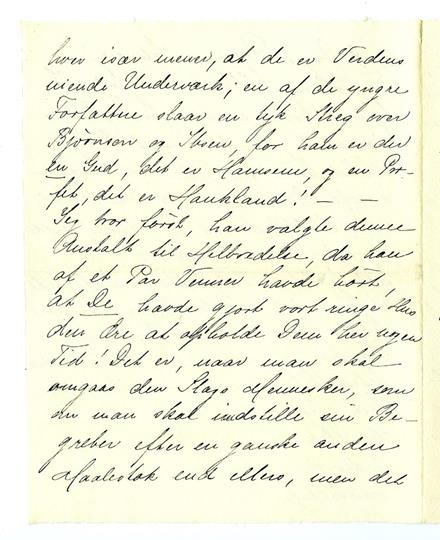 hver især mener, at de er Verdens
niende Underværk; en af de yngre
Forfattere slaar en tyk Streg over
Bjørnson og Ibsen, for ham er der
en Gud, det er Hamsun, og en Pro-
fet, det er Haukland! – –
Jeg tror først, han valgte denne
Anstalt til Helbredelse, da han
af et Par Venner havde hört,
at De havde gjort vort ringe Hus
den Ære at opholde Dem her nogen
Tid! Det er, naar man skal
omgaas den Slags Mennesker, som
om man skal indstille sin Be-
greber efter en ganske anden
Maalestok end ellers, men det